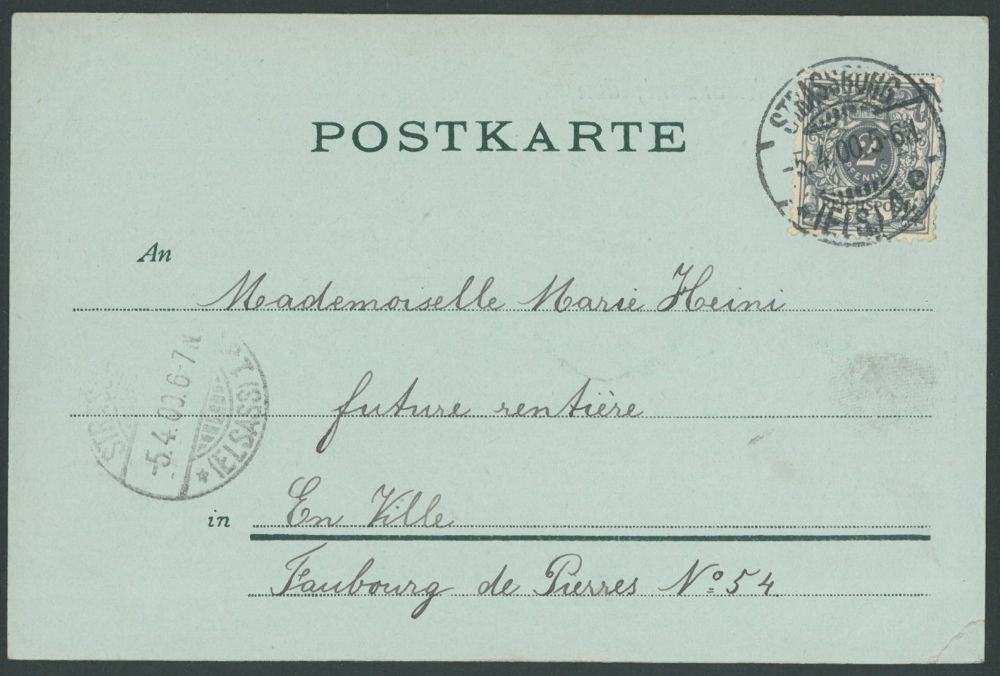 POSTKARTE
STRASSBURG
-5.4.00.5-6N.
(ELS)
2
PFENNIG
REICHSPOST
An
Mademoiselle Marie Heini
future rentière
-5.4.00.6-7N
* (ELSASS) 1.
in En Ville
Faubourg de Pierres No. 54